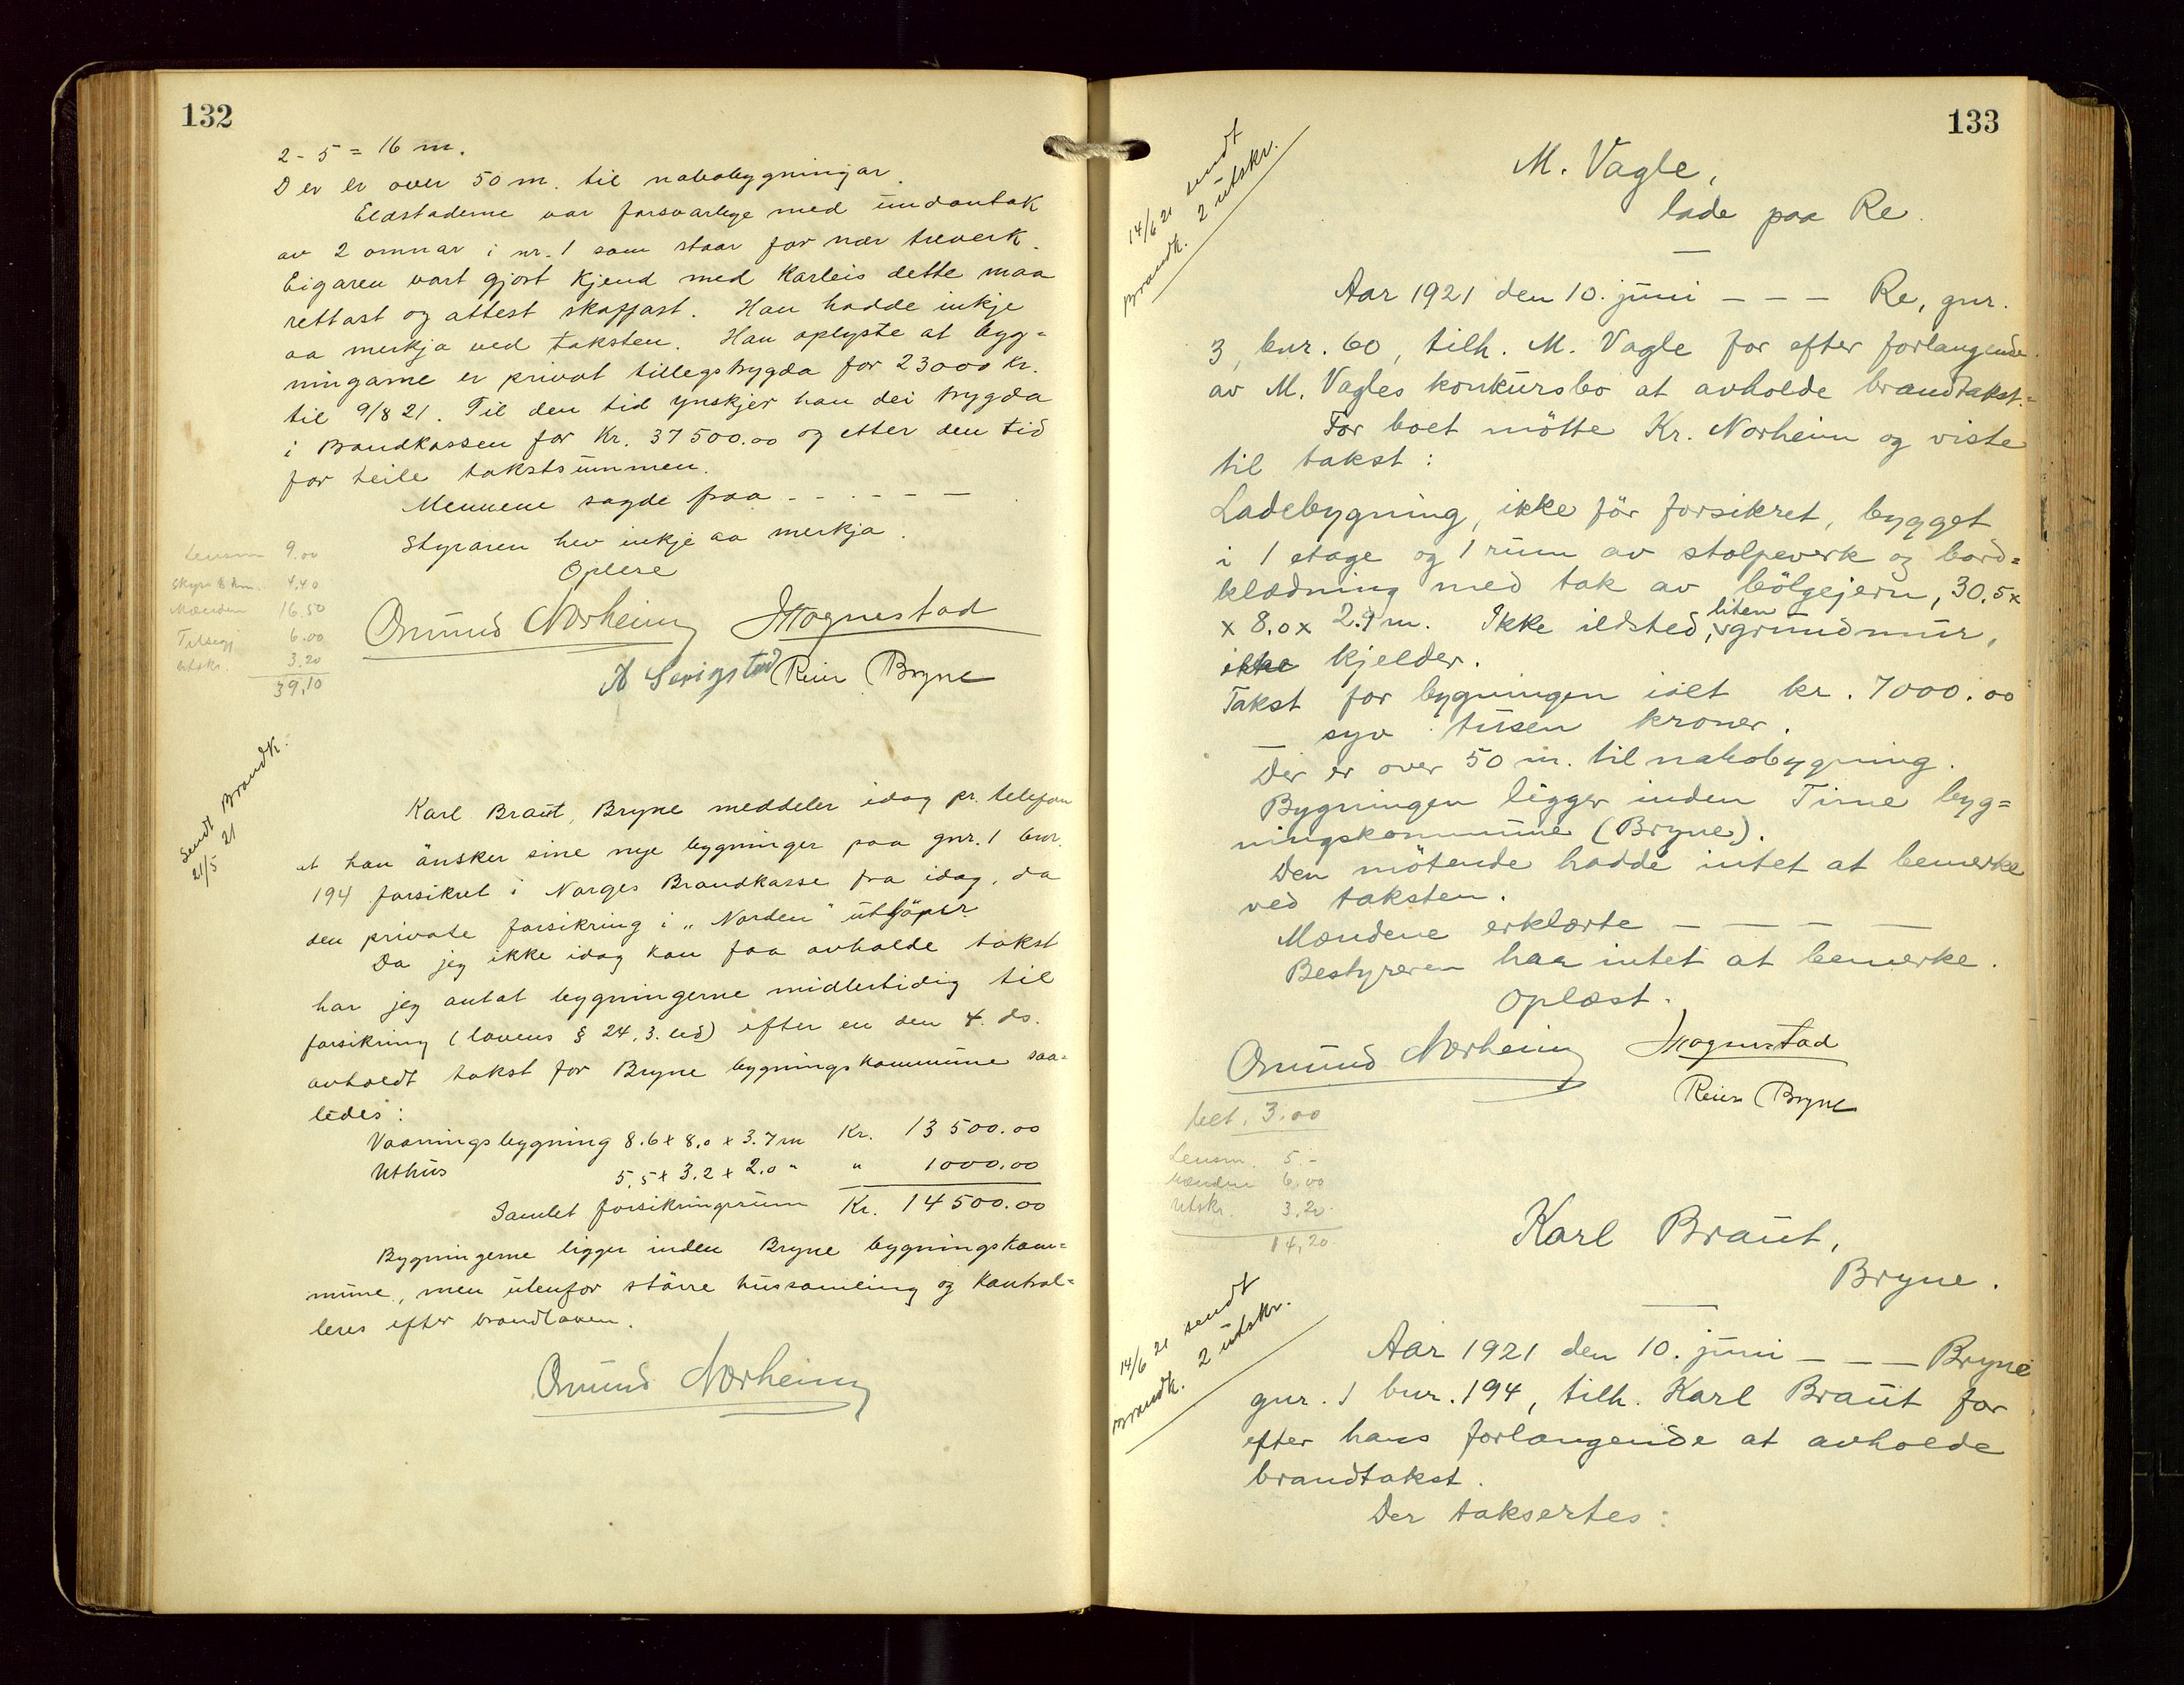 132
2-5 = 16 m.
Der er over 50 m. til nabobygningar.
Eldstaderne var forsvarlege med undantak
av 2 omnar i nr. 1 som staar for nær treverk.
Eigaren vart gjort kjend med korleis dette maa
rettast og attest skaffast. Han hadde inkje
aa merkja ved taksten. Han oplyste at byg=
ningarne er privat tillegstrygda for 23000 kr.
til 9/8 21. Til den tid ynskjer han dei trygda
i Brandkassen for Kr. 37500.00 og etter den tid
for heile takstsummen.
Mennene sagde fraa - - - - - -
Styraren hev inkje aa merkja.
Oplese
Lensm 9.00
Skyss 8 km. 4.40
Mænden 16.50
Tilsegj 6.00
Utskr. 3.20
39,10
Omund Norheim JHognestad
A Serigstad Reier Bryne
Sendt Brandk.
21/5 21
Karl Braut, Bryne meddeler idag pr. telefon
at han ønsker sine nye bygninger paa gnr. 1 bnr.
194 forsikret i Norges Brandkasse fra idag, da
den private forsikring i "Norden" utløper.
Da jeg ikke idag kan faa avholde takst
har jeg antat bygningerne midlertidig til
forsikring (lovens § 24, 3. led) efter en den 4. ds.
avholdt takst for Bryne bygningskommune saa=
ledes:
Vaaningsbygning 8.6 x 8.0 x 3.7 m Kr. 13500.00
Uthus 5,5 x 3.2 x 2.0 " " 1000.00
Samlet forsikringssum Kr. 14500.00
Bygningerne ligger inden Bryne bygningskom=
mune, men utenfor større hussamling og kontrol=
leres efter brandloven.
Omund Norheim
133
14/6 21 sendt
Brandk. 2 utskr.
M. Vagle,
lade paa Re.
Aar 1921 den 10. juni - - - Re, gnr.
3, bnr. 60, tilh. M. Vagle for efter forlangende
av M. Vagles konkursbo at avholde brandtakst.
For boet møtte Kr. Norheim og viste
til takst:
Ladebygning, ikke før forsikret, bygget
i 1 etage og 1 rum av stolpeverk og bord=
klædning med tak av bølgejern, 30,5 x
x 8.0 x 2.9 m. Ikke ildsted, liten grundmur,
ikke kjelder.
Takst for bygningen ialt kr. 7000.00
— syv tusen kroner.
Der er over 50 m. til nabobygning.
Bygningen ligger inden Time byg=
ningskommune (Bryne).
Den møtende hadde intet at bemerke
ved taksten.
Mændene erklærte — — — —
Bestyreren har intet at bemerke.
Oplæst.
Omund Norheim JHognestad
Reier Bryne
bet. 3.00
Lensm. 5.-
Mænden 6.00
Utskr. 3.20
14,20
Karl Braut,
Bryne.
14/6 21 sendt
Brandk. 2 utskr.
Aar 1921 den 10. juni - - - Bryne
gnr. 1 bnr. 194, tilh. Karl Braut for
efter hans forlangende at avholde
brandtakst.
Der taksertes: